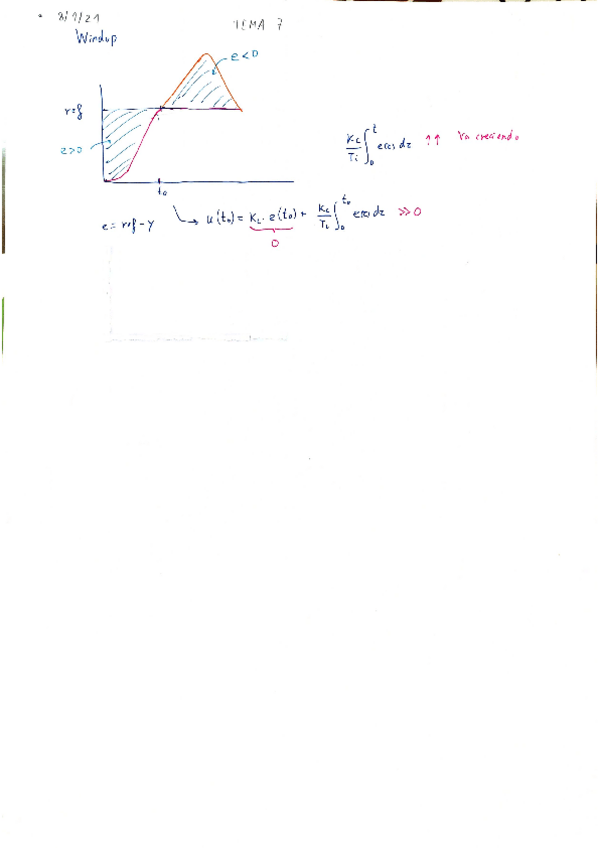 TEMA 7
Windup
e<0
ref
e>0
t₀
Kc/Ti ∫₀ᵗ e(z) dz ↑↑ Va creciendo
e = ref - y
u(t₀) = Kc · e(t₀) + Kc/Ti ∫₀^t₀ e(z) dz >> 0
0